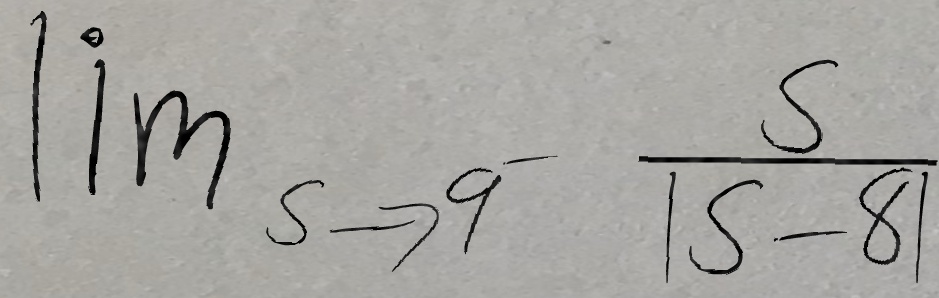 lim s→9⁻ s/|s-8|